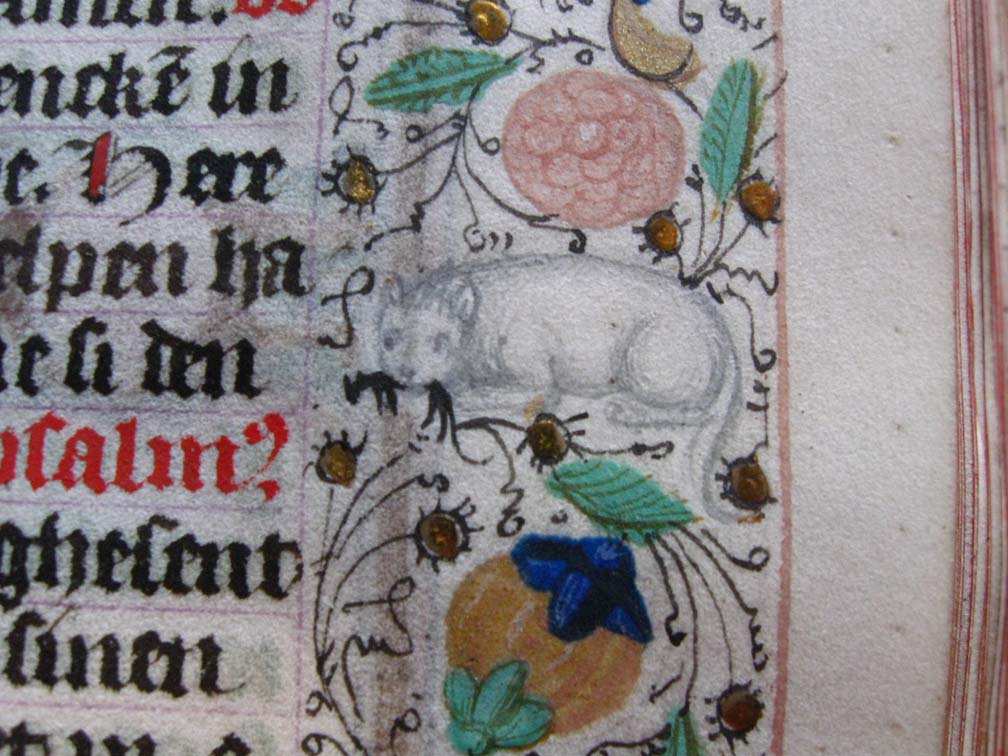 amen.
enckē in
Here
elpen ha
si den
psalmꝰ
ghesent
sinen